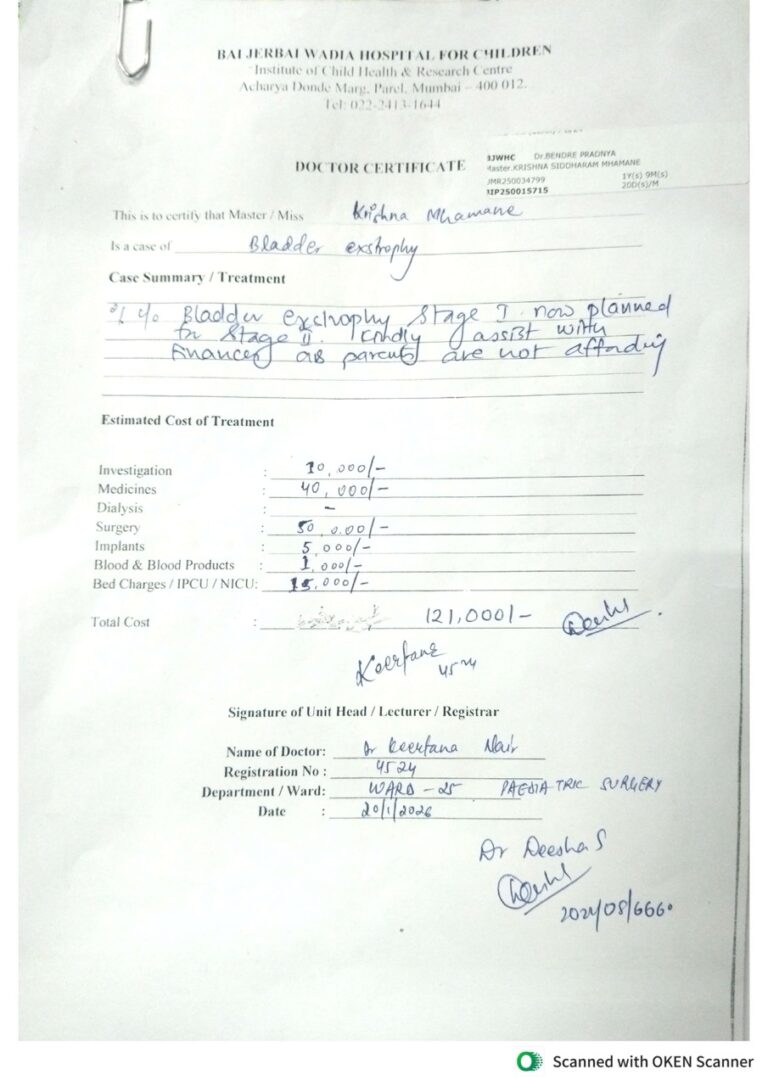 BAI JERBAI WADIA HOSPITAL FOR CHILDREN
Institute of Child Health & Research Centre
Acharya Donde Marg, Parel, Mumbai – 400 012.
Tel: 022-2413-1644
DOCTOR CERTIFICATE
BJWHC Dr.BENDRE PRADNYA
Master.KRISHNA SIDDHARAM MHAMANE
250034799 1Y(s) 9M(s)
IP250015715 20D(s)/M
This is to certify that Master / Miss Krishna Mhamane
Is a case of Bladder exstrophy
Case Summary / Treatment
Bladder exstrophy Stage I now planned
for Stage II. Kindly assist with
finances as parents are not affording
Estimated Cost of Treatment
Investigation : 10,000/-
Medicines : 40,000/-
Dialysis : -
Surgery : 50,000/-
Implants : 5,000/-
Blood & Blood Products : 1,000/-
Bed Charges / IPCU / NICU: 15,000/-
Total Cost : 121,000/-
Keerfana
4524
Signature of Unit Head / Lecturer / Registrar
Name of Doctor: Dr Keerfana Nair
Registration No : 4524
Department / Ward: WARD - 25 PAEDIATRIC SURGERY
Date : 20/1/2026
Dr Deesha S
2024/05/666
Scanned with OKEN Scanner